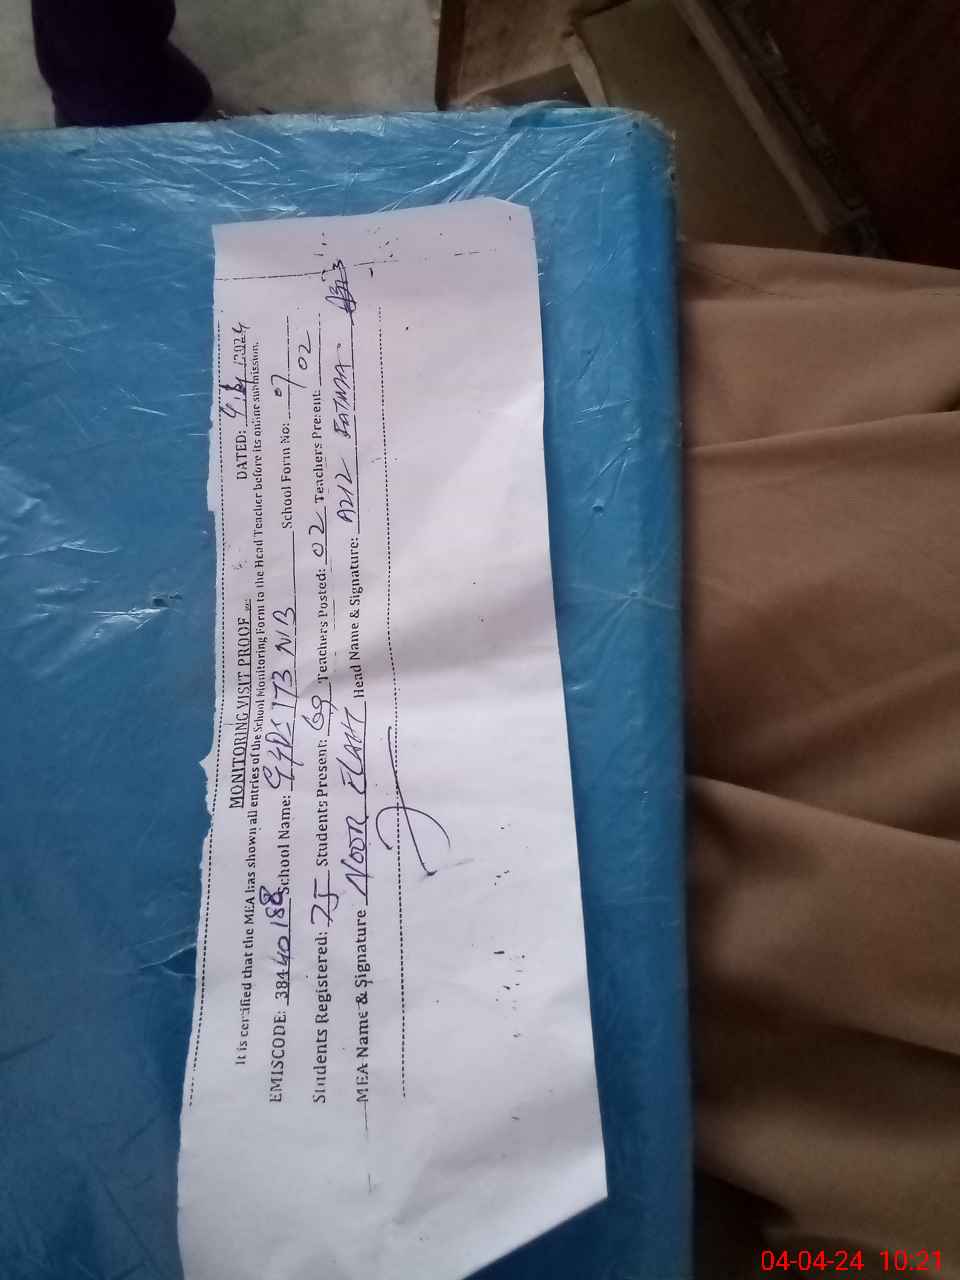 MONITORING VISIT PROOF DATED: 4/4/2024
It is certified that the MEA has shown all entries of the School Monitoring Form to the Head Teacher before its online submission.
EMISCODE: 38440188 School Name: GGPS 173 NB School Form No: 07
Students Registered: 75 Students Present: 69 Teachers Posted: 02 Teachers Present: 02
MEA Name & Signature NOOR ELAHI Head Name & Signature: AZIZ FATIMA
04-04-24 10:21